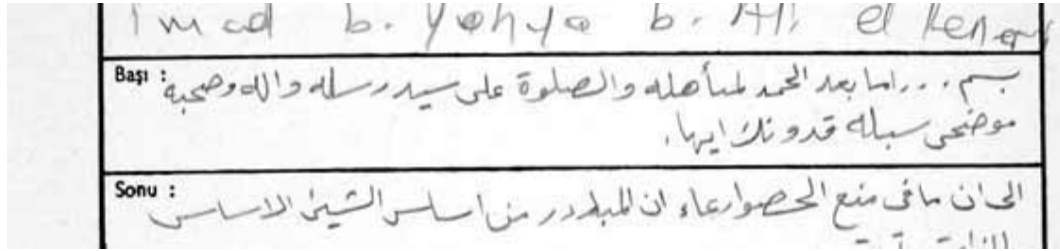 Imad b. Yahya b. Ali el
Başı : بسم ... اما بعد الحمد لمن هو اهله والصلوة على سيد رسله واله وصحبه
موضحى سبله فدونك ايها
Sonu : الى ان ما فى منع الحصر ادعاء ان المتبادر من اساس الشئ الاساس